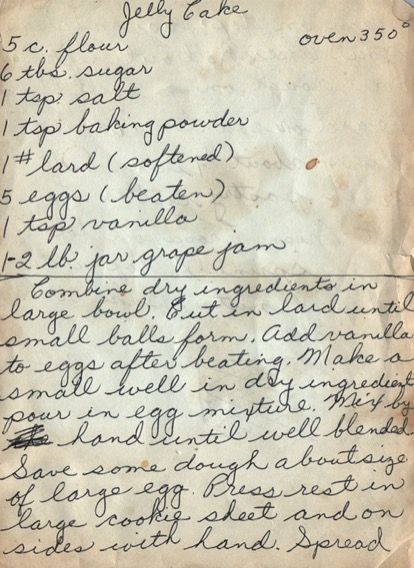 Jelly Cake
oven 350°
5 c. flour
6 tbs. sugar
1 tsp. salt
1 tsp baking powder
1# lard (softened)
5 eggs (beaten)
1 tsp vanilla
1-2 lb. jar grape jam
Combine dry ingredients in
large bowl. Cut in lard until
small balls form. Add vanilla
to eggs after beating. Make a
small well in dry ingredient
pour in egg mixture. Mix by
hand until well blended
Save some dough about size
of large egg. Press rest in
large cookie sheet and on
sides with hand. Spread